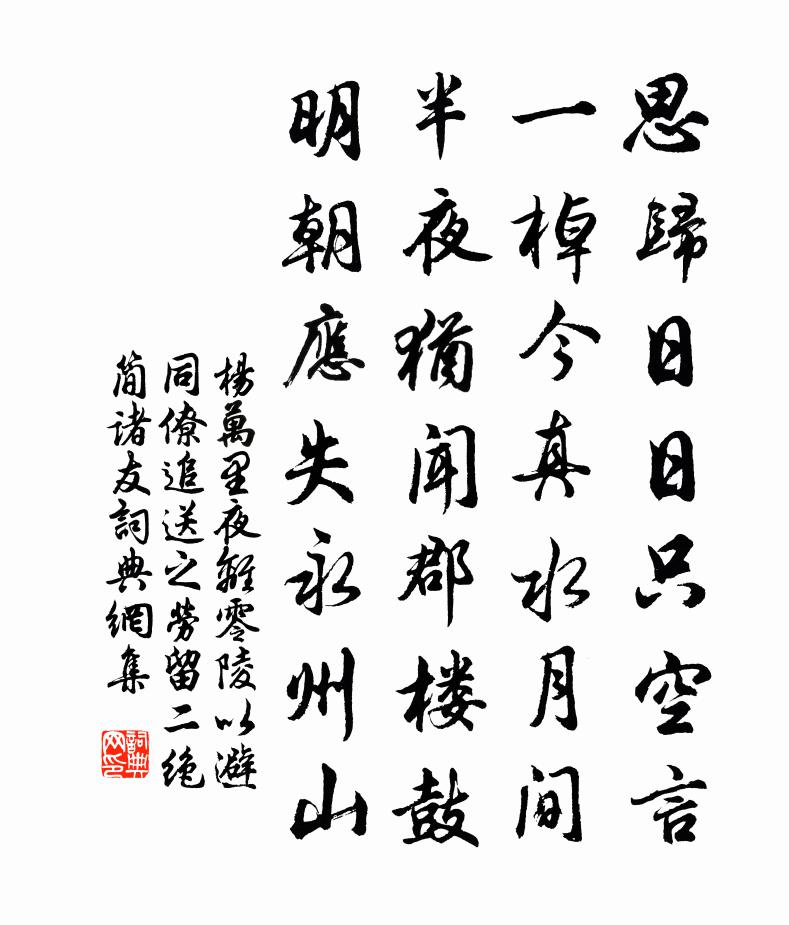 思歸日日只空言
一棹今真水月間
半夜猶聞郡楼鼓
明朝應失永州山
楊萬里夜離零陵以避
同僚追送之勞留二絶
简诸友詞典網集
詞典网印